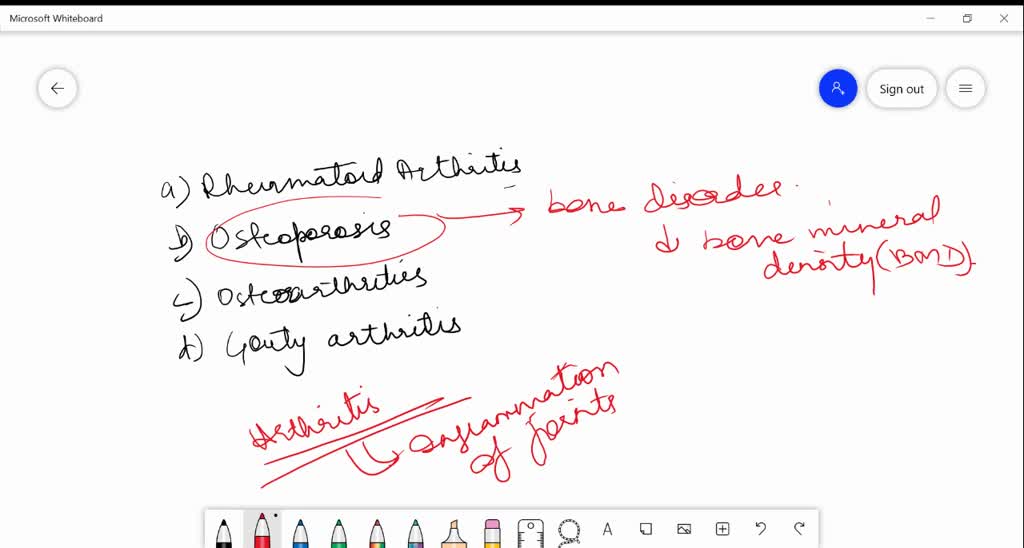 Microsoft Whiteboard
Sign out
a) Rheumatoid Arthritis
b) Osteoporosis → bone disorder.
↓ bone mineral
density (BMD)
c) Osteoarthrities
d) Gouty arthritis
Arthritis
Inflammation
of joints
A